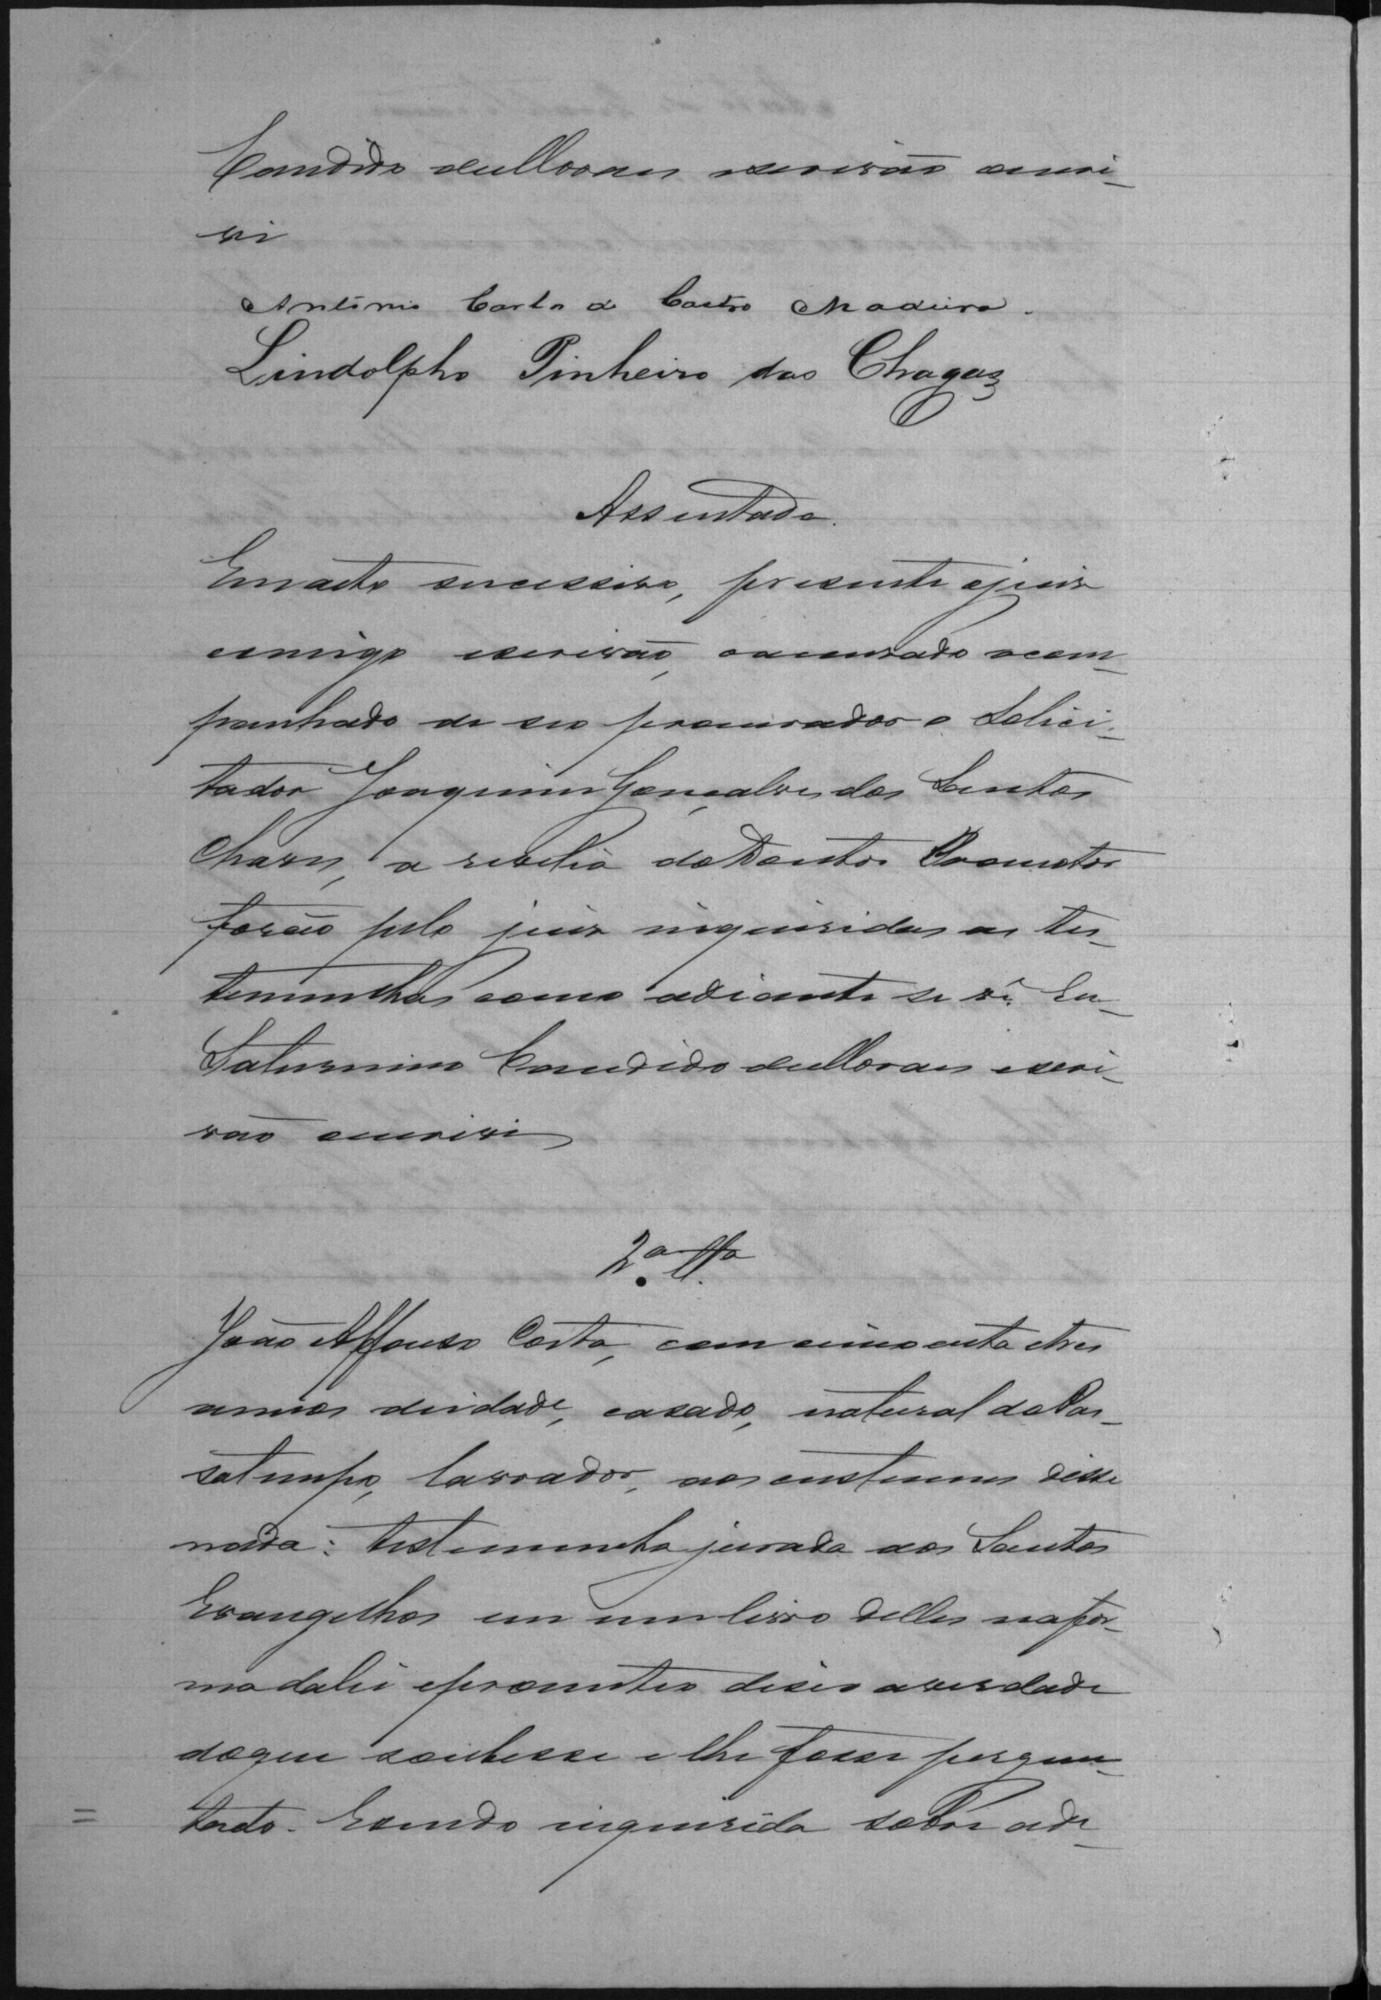 Candido de Moraes escrivão escre-
vi
Antonio Carlos de Castro Madeira.
Lindolpho Pinheiro das Chagas
Assentada.
Em acto successivo, presente o juiz
comigo escrivão, o accusado acom-
panhado de seo procurador o Solici-
tador Joaquim Gonçalves dos Santos
Chaves, a revelia do Doutor Promotor
forão pelo juiz inquiridas as tes-
temunhas como adiante se vê. Eu
Saturnino Candido de Moraes escri-
vão escrevi
2.ª Tª
João Affonso Costa, com cincoenta e tres
annos de idade, casado, natural do Pas-
satempo, lavrador, aos custumes disse
nada: testemunha jurada aos Santos
Evangelhos em um livro delles na for-
ma da lei e prometteo diser a verdade
do que soubesse e lhe fosse pergun-
tado. E sendo inquirida sobre a de-